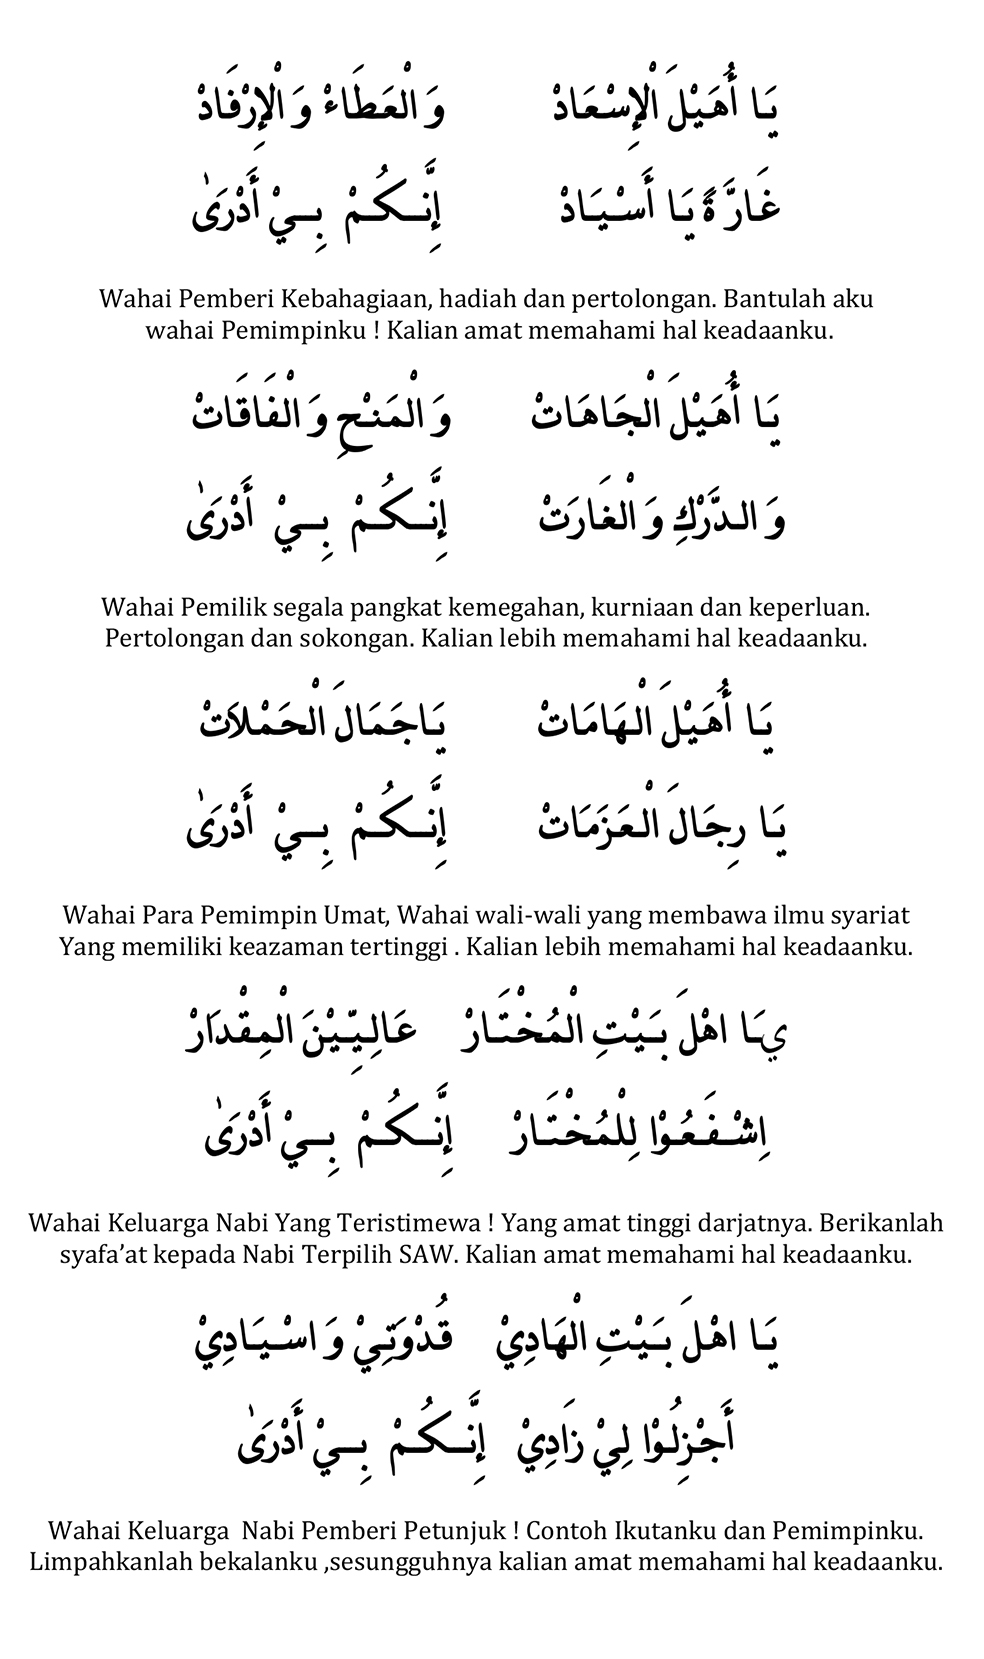 يَا أُهَيْلَ الْإِسْعَادْ وَالْعَطَاءْ وَالْإِرْفَادْ
غَارَّةً يَا أَسْيَادْ إِنَّكُمْ بِيْ أَدْرَىٰ
Wahai Pemberi Kebahagiaan, hadiah dan pertolongan. Bantulah aku
wahai Pemimpinku ! Kalian amat memahami hal keadaanku.
يَا أُهَيْلَ الْجَاهَاتْ وَالْمَنْحِ وَالْفَاقَاتْ
وَالدَّرْكِ وَالْغَارَتْ إِنَّكُمْ بِيْ أَدْرَىٰ
Wahai Pemilik segala pangkat kemegahan, kurniaan dan keperluan.
Pertolongan dan sokongan. Kalian lebih memahami hal keadaanku.
يَا أُهَيْلَ الْهَامَاتْ يَاجَمَالَ الْحَمْلَاتْ
يَا رِجَالَ الْعَزَمَاتْ إِنَّكُمْ بِيْ أَدْرَىٰ
Wahai Para Pemimpin Umat, Wahai wali-wali yang membawa ilmu syariat
Yang memiliki keazaman tertinggi . Kalian lebih memahami hal keadaanku.
يَا اهْلَ بَيْتِ الْمُخْتَارْ عَالِيِّيْنَ الْمِقْدَارْ
اِشْفَعُوْا لِلْمُخْتَارْ إِنَّكُمْ بِيْ أَدْرَىٰ
Wahai Keluarga Nabi Yang Teristimewa ! Yang amat tinggi darjatnya. Berikanlah
syafa’at kepada Nabi Terpilih SAW. Kalian amat memahami hal keadaanku.
يَا اهْلَ بَيْتِ الْهَادِيْ قُدْوَتِيْ وَاسْيَادِيْ
أَجْزِلُوْا لِيْ زَادِيْ إِنَّكُمْ بِيْ أَدْرَىٰ
Wahai Keluarga Nabi Pemberi Petunjuk ! Contoh Ikutanku dan Pemimpinku.
Limpahkanlah bekalanku ,sesungguhnya kalian amat memahami hal keadaanku.